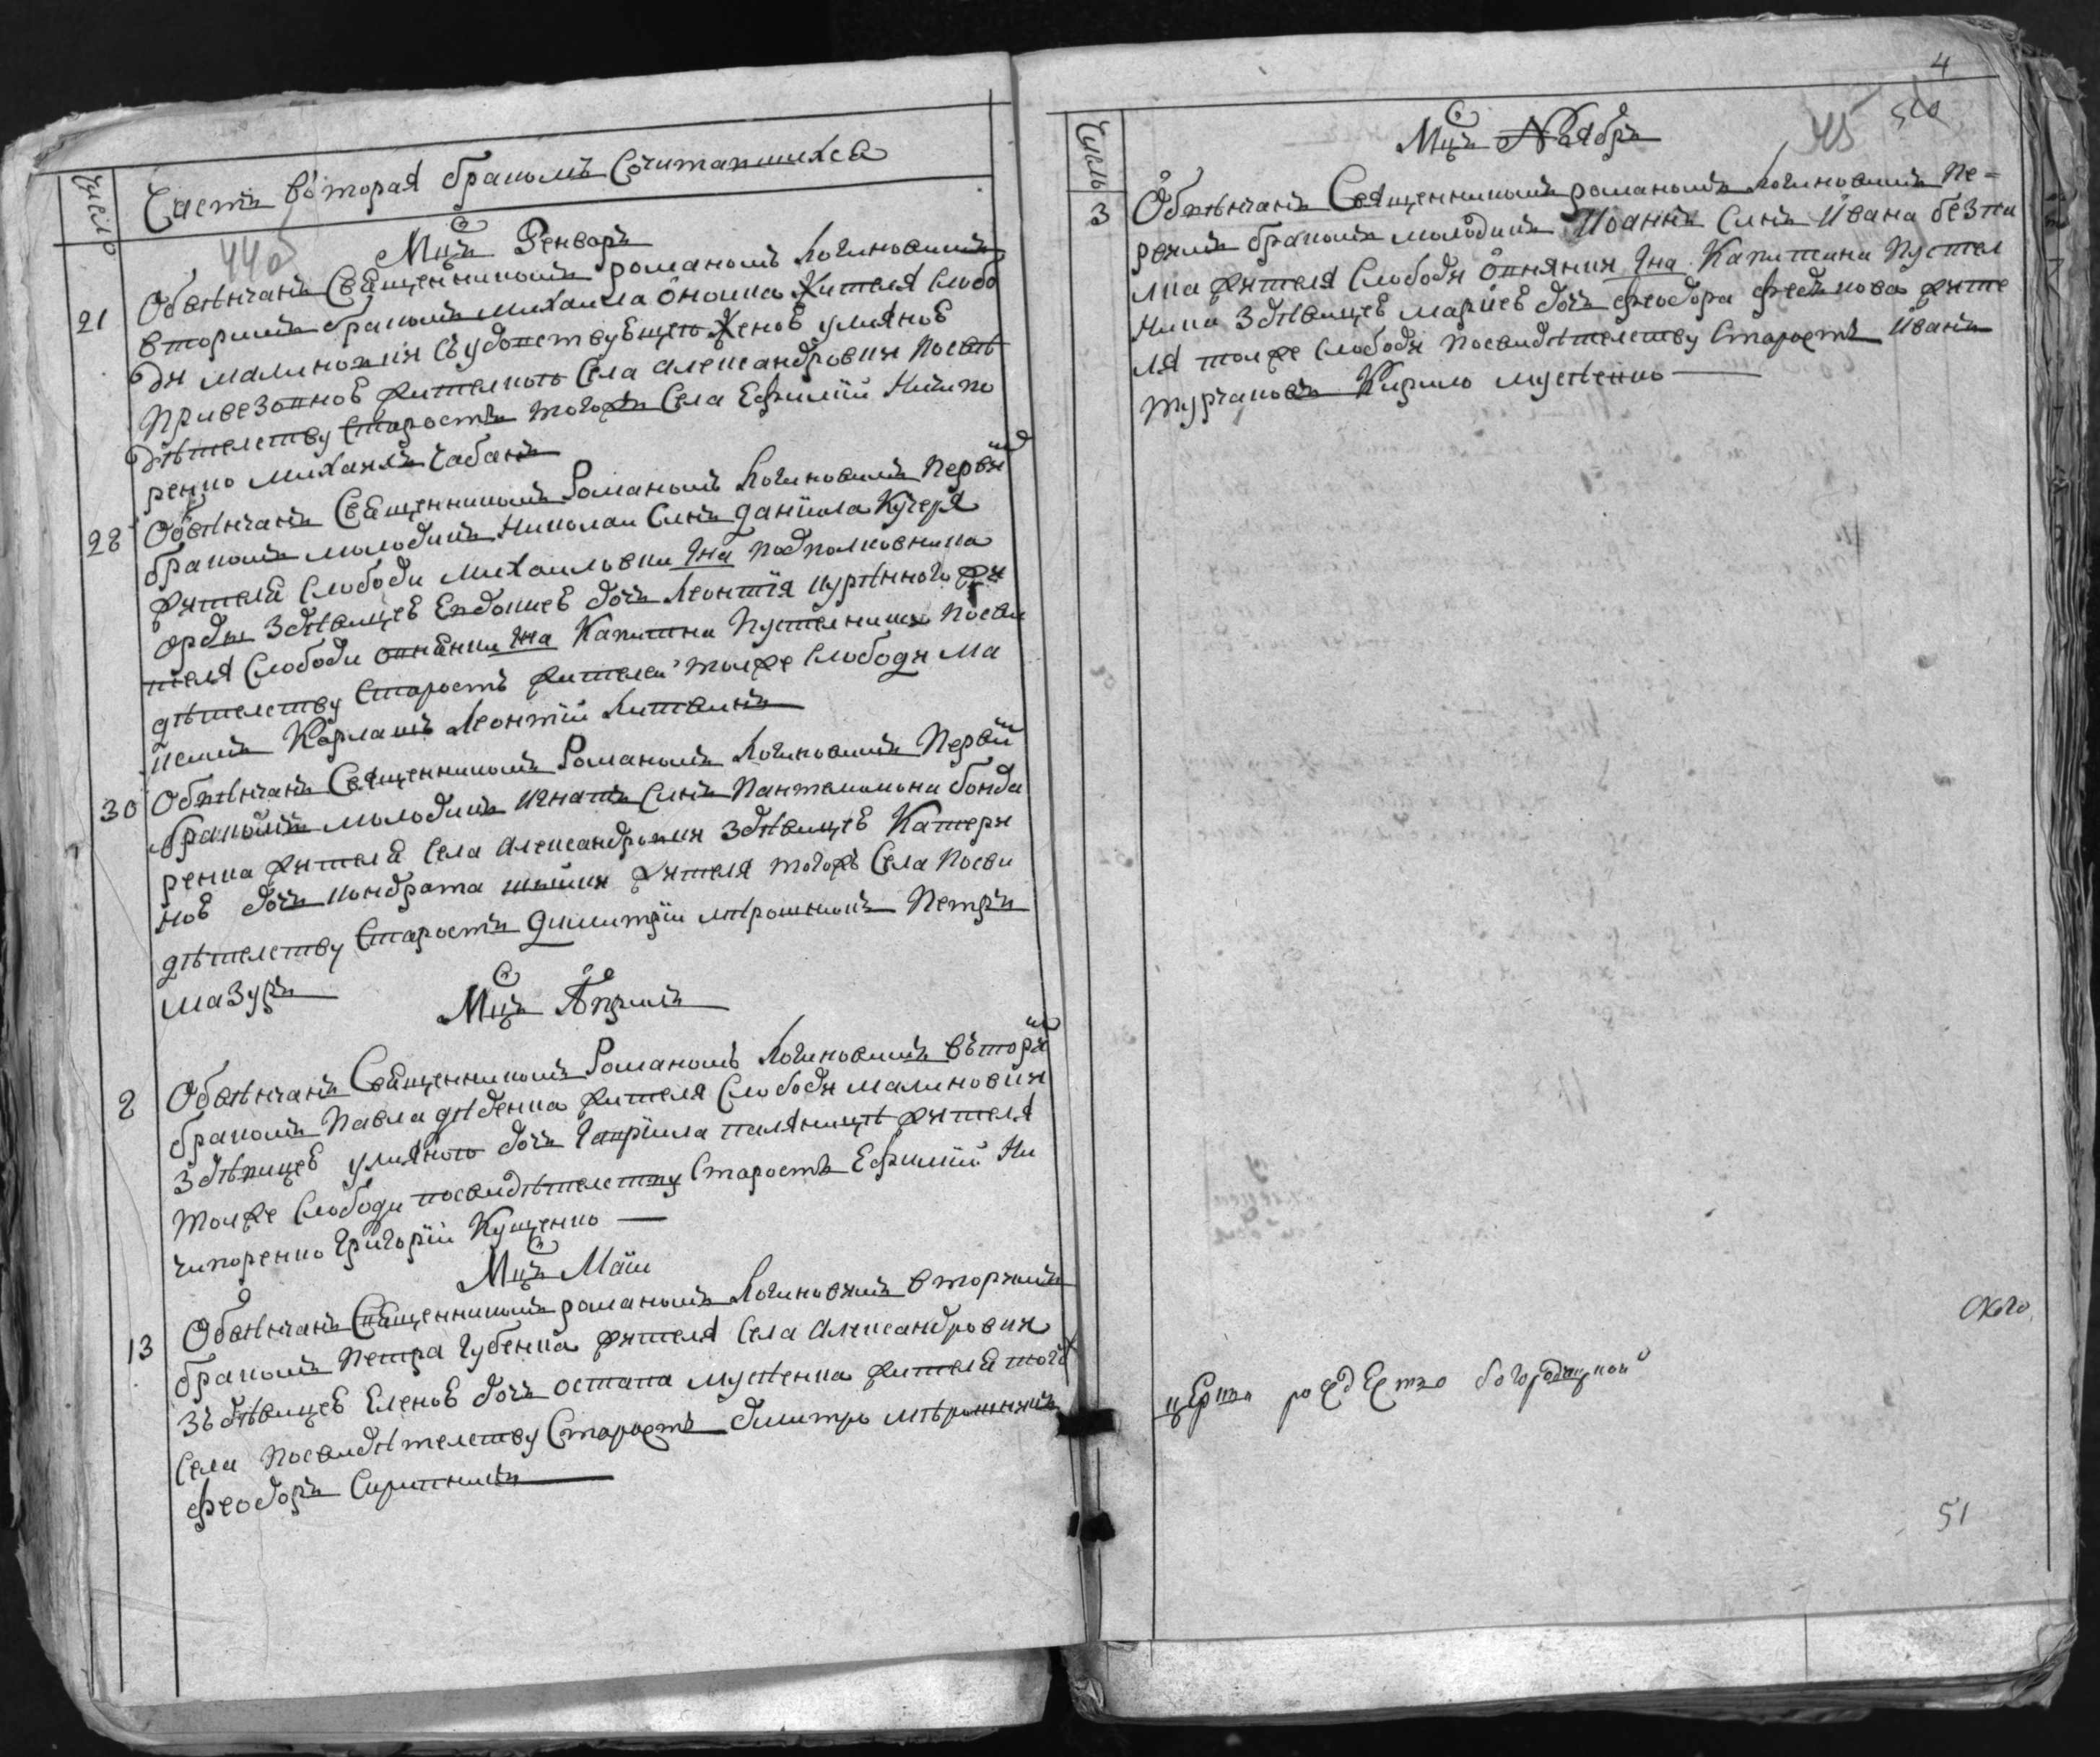 Число
Часть вторая браком Сочитавшихся
44об
Мцъ Генваръ
21
Обвѣнчанъ Священникомъ романомъ Логиновимъ
вторимъ бракомъ михаила жителя Слобо
ды малиновки Съ удовствующею женою улияною
жителкою Села александровки посвѣ
дѣтелству Старостъ тогожъ Села Ефимій Ничипо
ренко михаилъ чабанъ
28
Обвѣнчанъ Священникомъ Романомъ Логиновимъ первим
бракомъ молодикъ николаи Синъ даніила Кучеря
жителя Слободи михаиловки Гна подполковника
орди Здѣвицею Евдокиею дочь Леонтія курѣнного жи
теля Слободи Гна Капитна Пустелника посви
дѣтелству Старостъ жителеи тоиже слободи Ма
Леонтій Литвинъ
30
Обвѣнчанъ Священникомъ Романомъ Логиновимъ Первим
бракомъ молодикъ игнатъ Синъ Пантелимона бонда
ренка жителя Села александровки Здѣвицею Катери
ною дочь кондрата жителя тогожъ Села посви
дѣтелству Старостъ димитрій мѣрошникъ Петръ
мазуръ
Мцъ Априль
2
Обвѣнчанъ Священникомъ Романомъ Логиновимъ вътори
бракомъ Павла дѣденка жителя Слободи малиновки
Здѣвицею улияною дочь гавріила паляницѣ жителя
тоиже слободи посвидѣтелству Старостъ Ефимій Ни
чипоренко григорій Куценко
Мцъ Маіи
13
Обвѣнчанъ Священникомъ романомъ Логиновимъ вторимъ
бракомъ Петра губенка жителя Села александровки
Зъ дѣвицею Еленою дочь остапа мусѣенка жителя того
Села посвидѣтелству Старостъ дмитро мѣрошникъ
феодоръ Скрипникъ
4
Число
Мцъ Ноябръ
45
3
Обвѣнчанъ Священникомъ романомъ Логиновимъ пе-
рвимъ бракомъ молодикъ Иоаннъ Синъ Ивана безпа
лка жителя Слободи Гна Капитана Пустел
ника Здѣвицею мариею дочь феодора жите
ля тоиже слободи посвидѣтелству Старостъ Иванъ
турчановъ Кирило мусѣенко
церкви рождество богородицкой
51